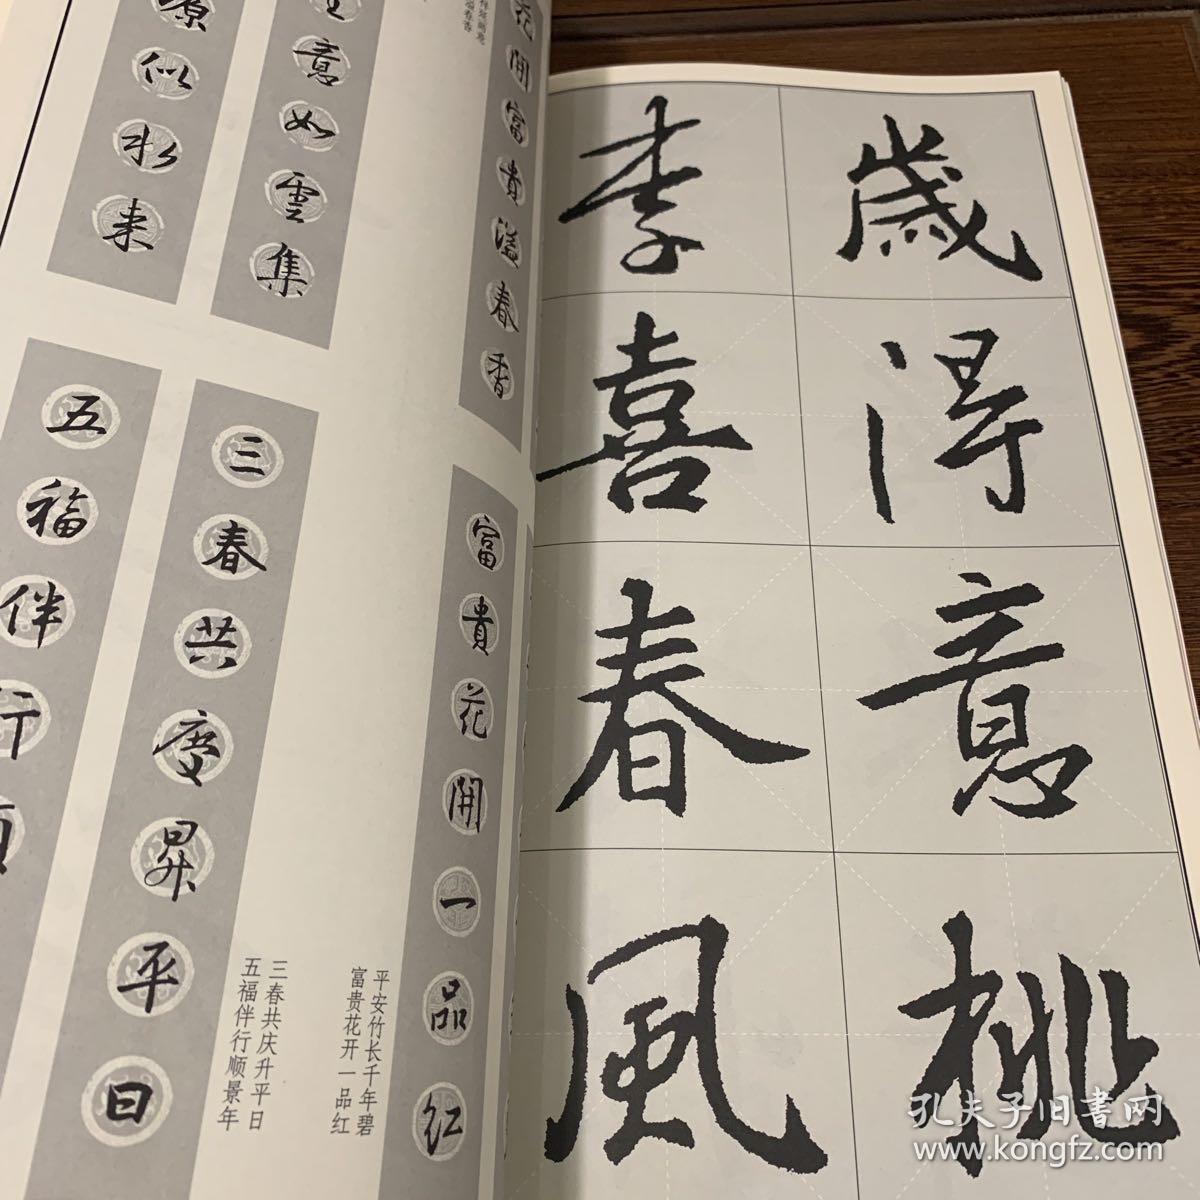 歲得意桃
李喜春風
花開富貴溢春香
富貴花開一品紅
平安竹长千年碧
富贵花开一品红
意如雲集
似水來
三春共慶昇平日
五福伴行
三春共庆升平日
五福伴行顺景年
孔夫子旧书网
www.kongfz.com